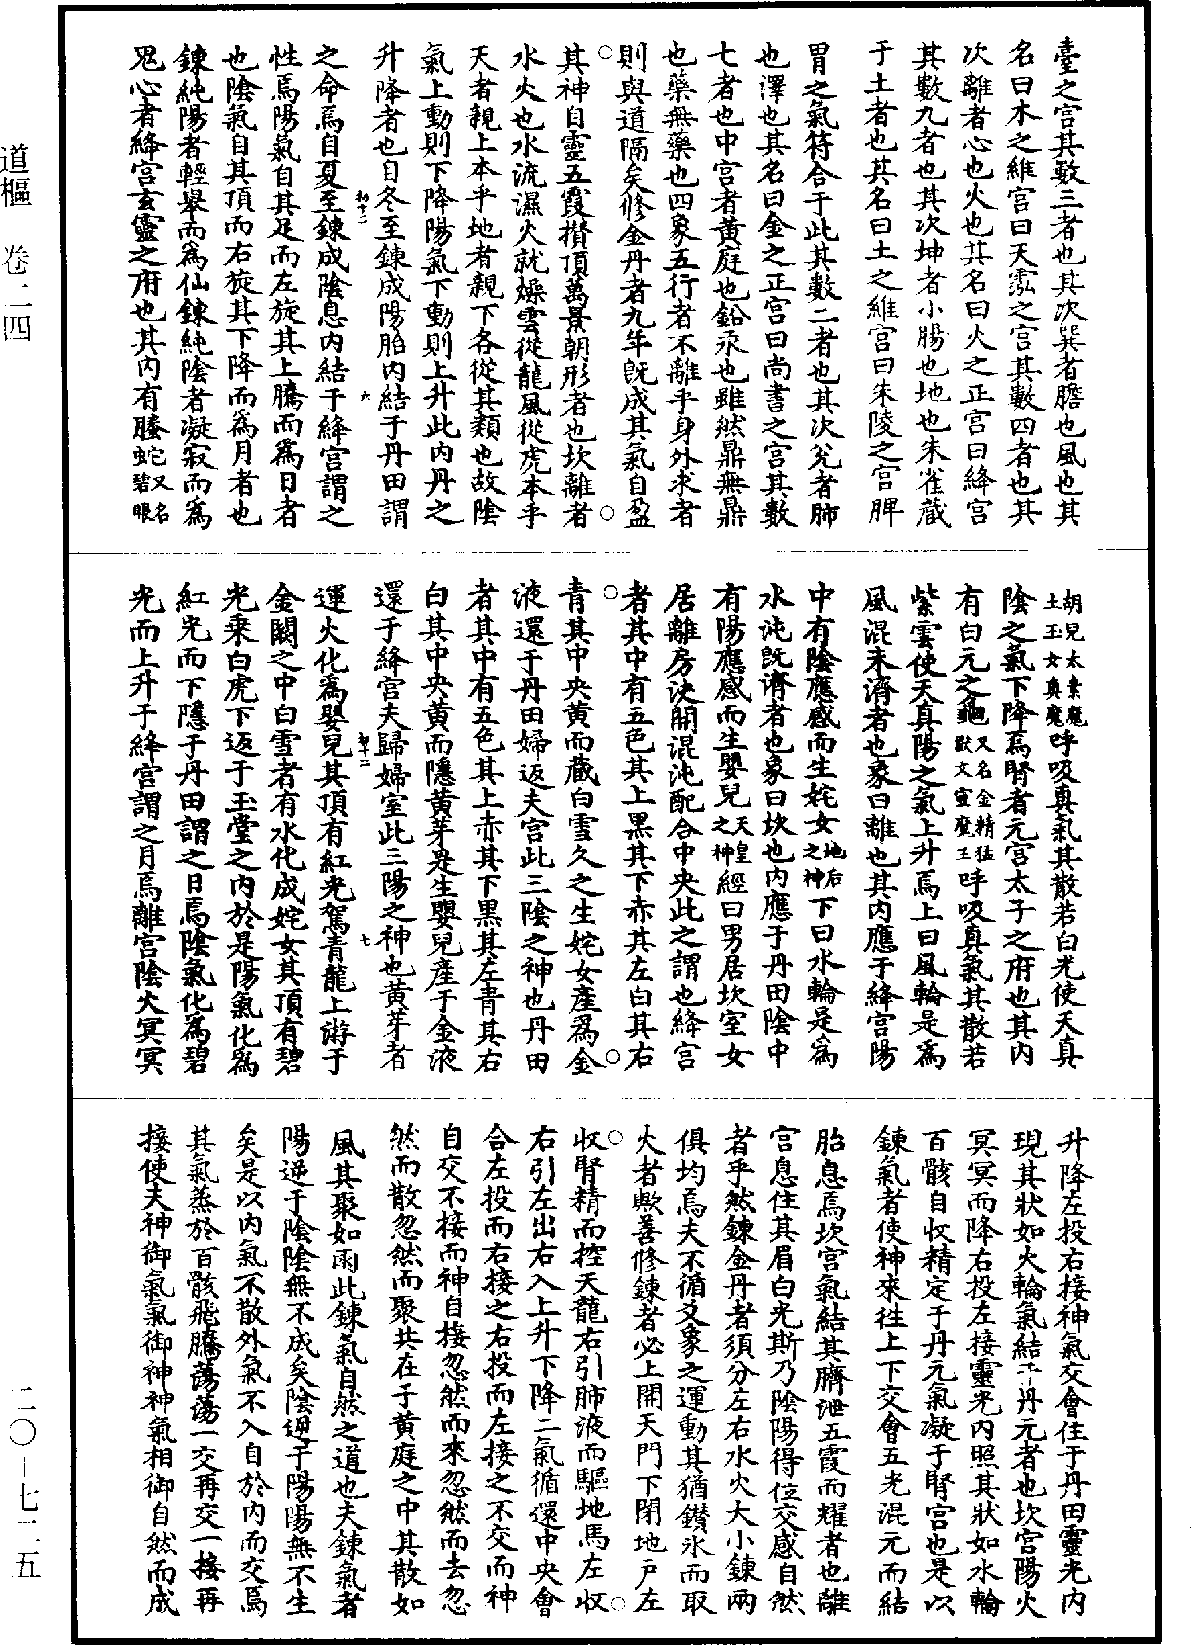 道樞 卷二四
二〇—七二五
臺之宫其數三者也其次巽者膽也風也其
名曰木之維宫曰天霐之宫其數四者也其
次離者心也火也其名曰火之正宫曰絳宫
其數九者也其次坤者小腸也地也朱雀藏
于土者也其名曰土之維宫曰朱陵之宫脾
胃之氣符合于此其數二者也其次兊者肺
也澤也其名曰金之正宫曰尚書之宫其數
七者也中宫者黄庭也鉛汞也雖然鼎無鼎
也藥無藥也四象五行者不離乎身外求者
則與道隔矣修金丹者九年旣成其氣自盈
其神自靈五霞攅頂萬景朝形者也坎離者
水火也水流濕火就燥雲從龍風從虎本乎
天者親上本乎地者親下各從其類也故陰
氣上動則下降陽氣下動則上升此内丹之
升降者也自冬至鍊成陽胎内結于丹田謂
之命焉自夏至鍊成陰息内結于絳宫謂之
性焉陽氣自其足而左旋其上騰而爲日者
也陰氣自其頂而右旋其下降而爲月者也
鍊純陽者輕舉而爲仙鍊純陰者凝寂而爲
鬼心者絳宫玄靈之府也其内有螣蛇又名碧眼
胡兒太素魔土玉女真魔呼吸真氣其散若白光使天真
陰之氣下降焉腎者元宫太子之府也其内
有白元之龜又名金精猛獸文宣魔王呼吸真氣其散若
紫雲使天真陽之氣上升焉上曰風輪是爲
風混未濟者也象曰離也其内應于絳宫陽
中有陰應感而生姹女地后之神下曰水輪是爲
水沌旣濟者也象曰坎也内應于丹田陰中
有陽應感而生嬰兒天皇之神經曰男居坎室女
居離房決開混沌配合中央此之謂也絳宫
者其中有五色其上黑其下赤其左白其右
青其中央黄而藏白雪久之生姹女產爲金
液還于丹田婦返夫宫此三陰之神也丹田
者其中有五色其上赤其下黑其左青其右
白其中央黄而隱黄芽是生嬰兒產于金液
還于絳宫夫歸婦室此三陽之神也黄芽者
運火化爲嬰兒其頂有紅光駕青龍上游于
金闕之中白雪者有水化成姹女其頂有碧
光乗白虎下返于玉堂之内於是陽氣化爲
紅光而下隱于丹田謂之日焉陰氣化爲碧
光而上升于絳宫謂之月焉離宫陰火冥冥
升降左投右接神氣交會住于丹田靈光内
現其狀如火輪氣結于丹元者也坎宫陽火
冥冥而降右投左接靈光内照其狀如水輪
百骸自收精定于丹元氣凝于腎宫也是以
鍊氣者使神來往上下交會五光混元而結
胎息焉坎宫氣結其臍泄五霞而耀者也離
宫息住其眉白光斯乃陰陽得位交感自然
者乎然鍊金丹者須分左右水火大小鍊兩
俱均焉夫不循爻象之運動其猶鑽氷而取
火者歟善修鍊者必上開天門下閉地戶左
收腎精而控天龍右引肺液而驅地馬左收
右引左出右入上升下降二氣循還中央會
合左投而右接之右投而左接之不交而神
自交不接而神自接忽然而來忽然而去忽
然而散忽然而聚共在于黄庭之中其散如
風其聚如雨此鍊氣自然之道也夫鍊氣者
陽逆于陰陰無不成矣陰迎于陽陽無不生
矣是以内氣不散外氣不入自於内而交焉
其氣蒸於百骸飛騰蕩蕩一交再交一接再
接使夫神御氣氣御神神氣相御自然而成